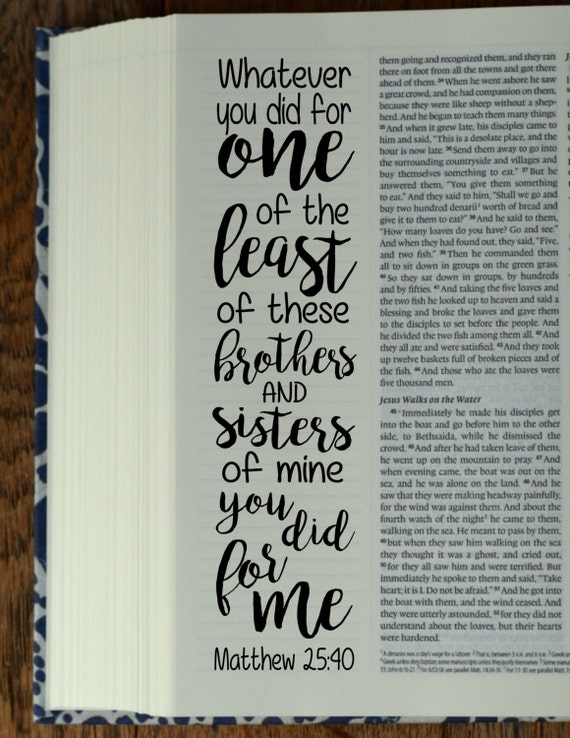 Whatever
you did for
one
of the
least
of these
brothers
AND
sisters
of mine
you
did
for
me
Matthew 25:40
them going and recognized them, and they ran
there on foot from all the towns and got there
ahead of them. 34 When he went ashore he saw
a great crowd, and he had compassion on them,
because they were like sheep without a shep-
herd. And he began to teach them many things.
35 And when it grew late, his disciples came to
him and said, "This is a desolate place, and the
hour is now late. 36 Send them away to go into
the surrounding countryside and villages and
buy themselves something to eat." 37 But he
answered them, "You give them something
to eat." And they said to him, "Shall we go and
buy two hundred denarii¹ worth of bread and
give it to them to eat?" 38 And he said to them,
"How many loaves do you have? Go and see."
And when they had found out, they said, "Five,
and two fish." 39 Then he commanded them
all to sit down in groups on the green grass.
40 So they sat down in groups, by hundreds
and by fifties. 41 And taking the five loaves and
the two fish he looked up to heaven and said a
blessing and broke the loaves and gave them
to the disciples to set before the people. And
he divided the two fish among them all. 42 And
they all ate and were satisfied. 43 And they took
up twelve baskets full of broken pieces and of
the fish. 44 And those who ate the loaves were
five thousand men.
Jesus Walks on the Water
45 Immediately he made his disciples get
into the boat and go before him to the other
side, to Bethsaida, while he dismissed the
crowd. 46 And after he had taken leave of them,
he went up on the mountain to pray. 47 And
when evening came, the boat was out on the
sea, and he was alone on the land. 48 And he
saw that they were making headway painfully,
for the wind was against them. And about the
fourth watch of the night² he came to them,
walking on the sea. He meant to pass by them,
49 but when they saw him walking on the sea
they thought it was a ghost, and cried out,
50 for they all saw him and were terrified. But
immediately he spoke to them and said, "Take
heart; it is I. Do not be afraid." 51 And he got into
the boat with them, and the wind ceased. And
they were utterly astounded, 52 for they did not
understand about the loaves, but their hearts
were hardened.
¹ A denarius was a day's wage for a laborer ² That is, between 3 A.M. and 6 A.M.
Greek unless they baptize; some manuscripts unless they purify themselves